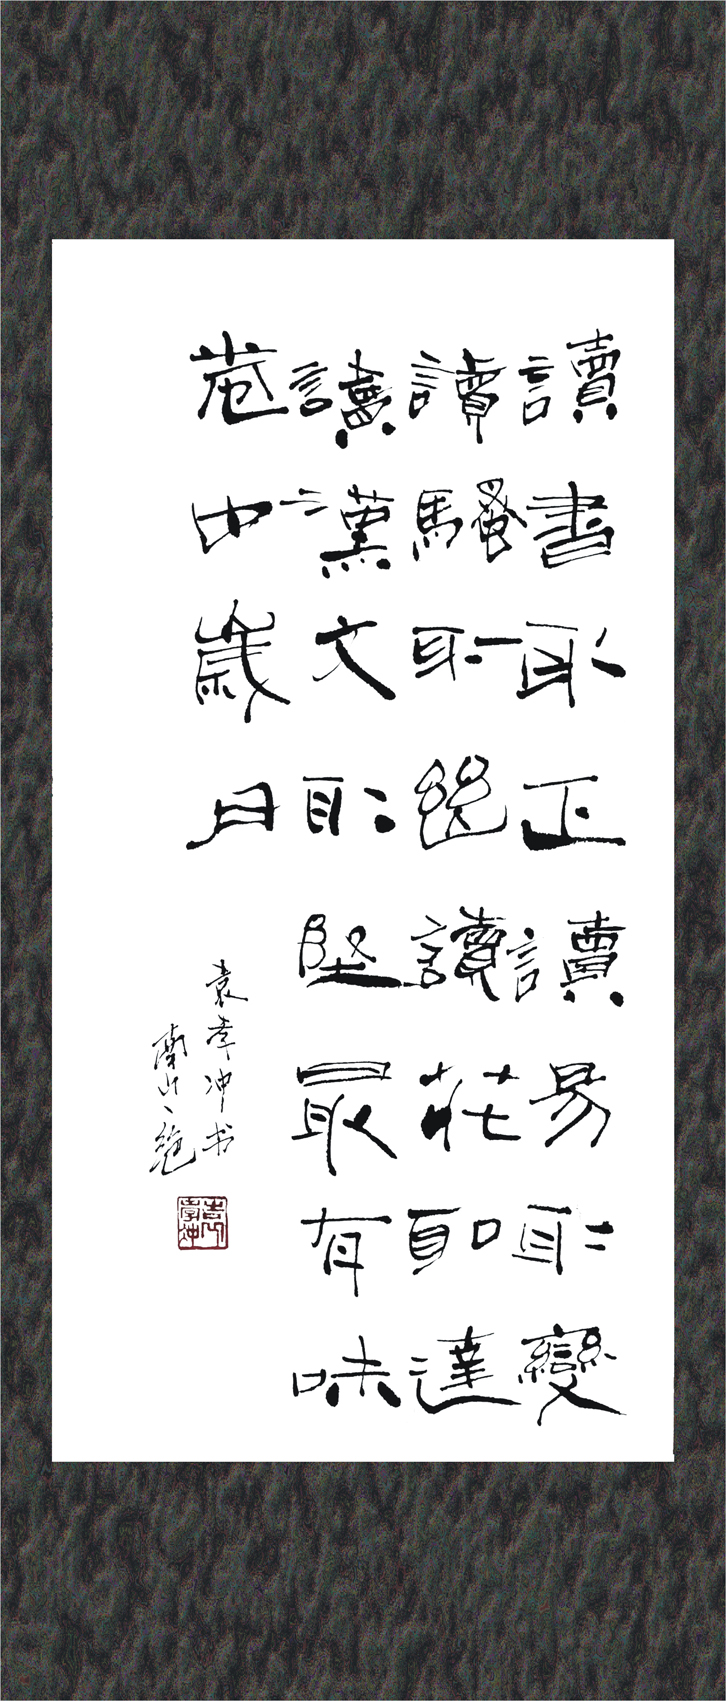 讀書取正讀易取變
讀騷取幽讀莊取達
讀漢文取堅最有味
卷中歲月
袁孝冲书
南山